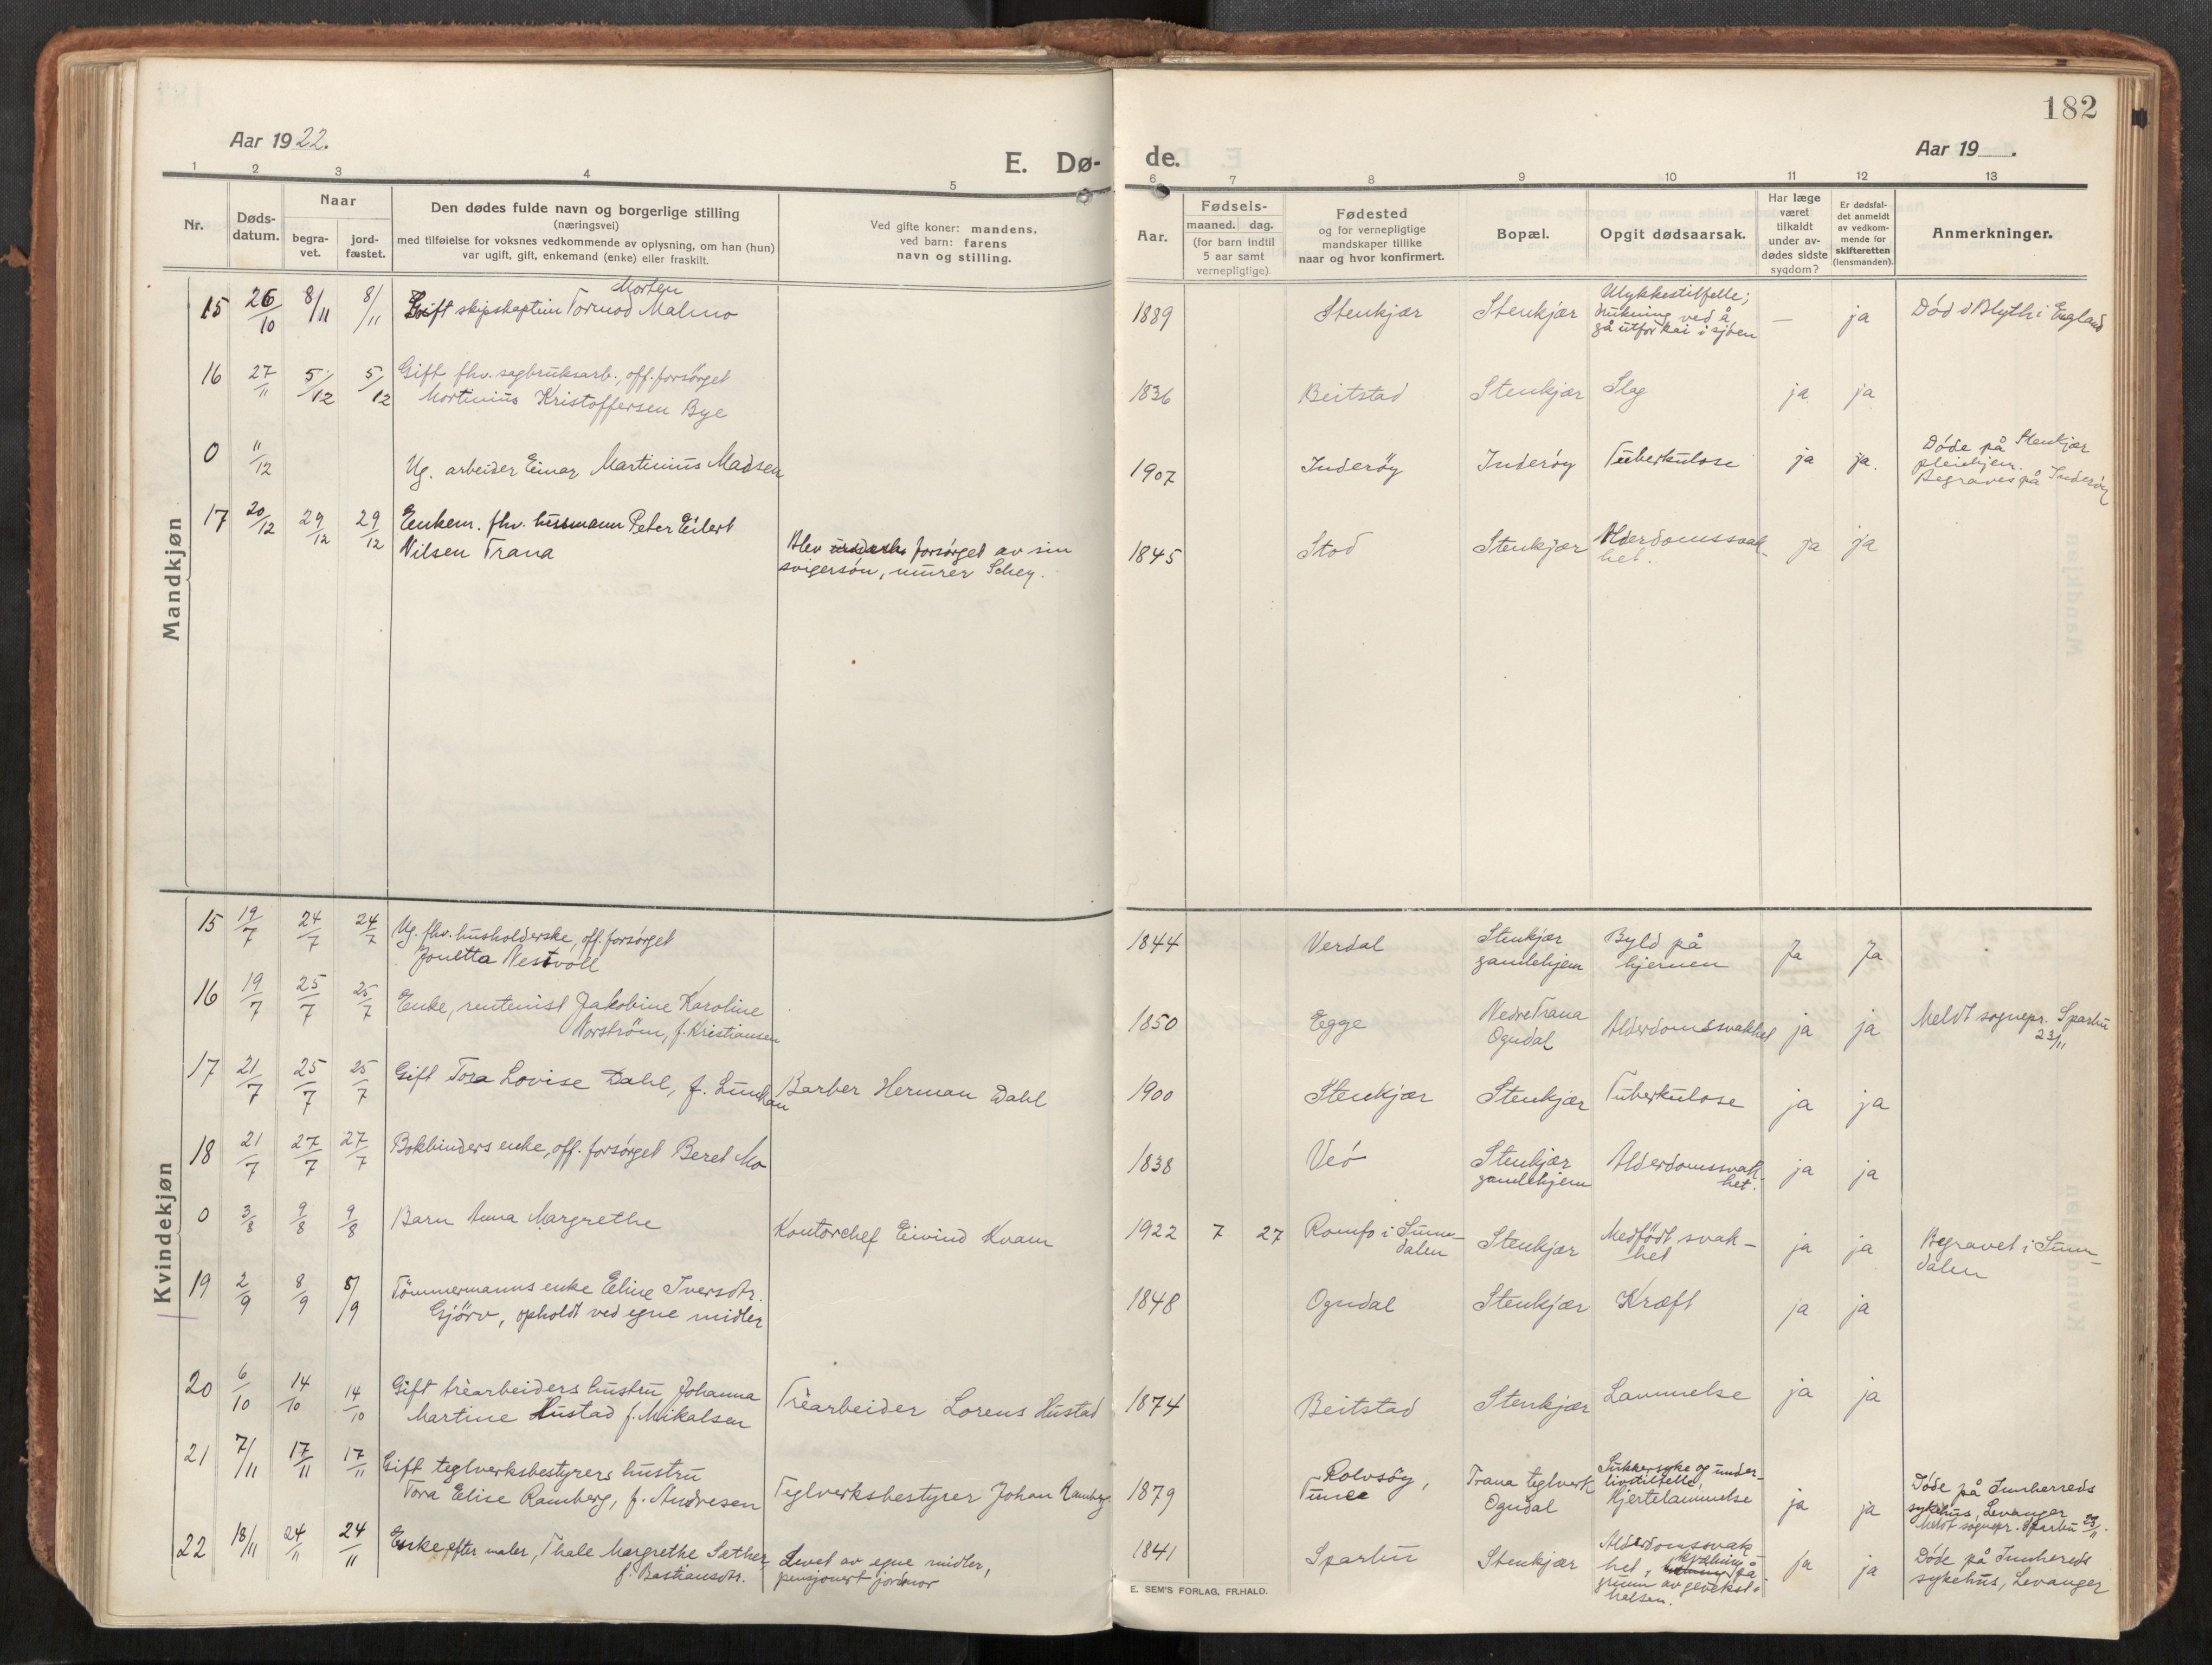 182
Aar 1922.
E. Dø-
de.
Aar 19 .
1 2 3 4 5 6 7 8 9 10 11 12 13
Nr.
Døds-
datum.
Naar
begra-
vet.
jord-
fæstet.
Den dødes fulde navn og borgerlige stilling
(næringsvei)
med tilføielse for voksnes vedkommende av oplysning, om han (hun)
var ugift, gift, enkemand (enke) eller fraskilt.
Ved gifte koner: mandens,
ved barn: farens
navn og stilling.
Aar.
Fødsels-
maaned. dag.
(for barn indtil
5 aar samt
vernepligtige)
Fødested
og for vernepligtige
mandskaper tillike
naar og hvor konfirmert.
Bopæl.
Opgit dødsaarsak.
Har læge
været
tilkaldt
under av-
dødes sidste
sygdom?
Er dødsfal-
det anmeldt
av vedkom-
mende for
skifteretten
(lensmanden).
Anmerkninger.
Mandkjøn
15 26/10 8/11 8/11
Morten
Gift skipskaptein Tormod Malmo
1889 Stenkjær Stenkjær
Ulykkestilfelle;
drukning ved å
gå utfor kai i sjöen
— ja
Död i Blyth i England
16 27/11 5/12 5/12
Gift fhv. sagbruksarb., off. forsörget
Martinius Kristoffersen Bye
1836 Beitstad Stenkjær Slag ja ja
0 11/12
Ug. arbeider Einar Martinius Madsen
1907 Inderöy Inderöy Tuberkulose ja ja.
Döde på Stenkjær
pleiehjem.
Begraves på Inderöy
17 20/12 29/12 29/12
Enkem. fhv. husmann Peter Eilert
Nilsen Trana
Blev forsörget av sin
svigersön, murer Schey.
1845 Stod Stenkjær
Alderdomssvak-
het.
ja ja
Kvindekjøn
15 19/7 24/7 24/7
Ug. fhv. husholderske, off. forsörget
Jonetta Nestvoll
1844 Verdal
Stenkjær
gamlehjem
Byld på
hjernen
Ja Ja
16 19/7 25/7 25/7
Enke, rentenist Jakobine Karoline
Norström, f. Kristiansen
1850 Egge
Nedre Trana
Ogndal
Alderdomssvakhet ja ja
Meldt sognepr. Sparbu
23/11
17 21/7 25/7 25/7
Gift Tora Lovise Dahl, f. Lunkan
Barber Herman Dahl
1900 Stenkjær Stenkjær Tuberkulose ja ja
18 21/7 27/7 27/7
Bokbinders enke, off. forsörget Beret Mo
1838 Veö
Stenkjær
gamlehjem
Alderdomssvak-
het.
ja ja
0 3/8 9/8 9/8
Barn Anna Margrethe
Kontorchef Eivind Kvam
1922 7 27
Romfo i Sunn-
dalen
Stenkjær
Medfödt svak-
het
ja ja
Begravet i Sunn-
dalen
19 2/9 8/9 8/9
Tömmermanns enke Eline Iversdtr.
Gjörv, opholdt ved egne midler
1848 Ogndal Stenkjær Kræft ja ja
20 6/10 14/10 14/10
Gift trèarbeiders hustru Johanna
Martine Hustad f. Mikalsen
Trèarbeider Lorens Hustad
1874 Beitstad Stenkjær Lammelse ja ja
21 7/11 17/11 17/11
Gift teglverksbestyrers hustru
Tora Elise Ramberg, f. Andresen
Teglverksbestyrer Johan Ramberg.
1879
Rolvsöy,
Tune
Trana teglverk
Ogndal
Sukkersyke og under-
livstilfelle,
Hjertelammelse
ja ja
Döde på Innherreds
sykehus, Levanger
Meldt sognepr. Sparbu 23/11.
22 18/11 24/11 24/11
Enke efter maler, Thale Margrethe Sæther,
f. Bastiansdtr.
Levet av egne midler,
pensjonert jordmor
1841 Sparbu Stenkjær
Alderdomssvak
het, kvælning på
grunn av gevekst i
halsen.
ja ja
Döde på Innhereds
sykehus, Levanger
E. SEM'S FORLAG, FR.HALD.